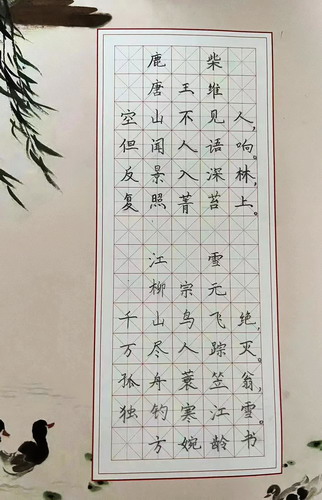 鹿柴
唐王维
空山不见人，
但闻人语响。
反景入深林，
复照菁苔上。
江雪
柳宗元
千山鸟飞绝，
万尽人踪灭。
孤舟蓑笠翁，
独钓寒江雪。
方婉龄书